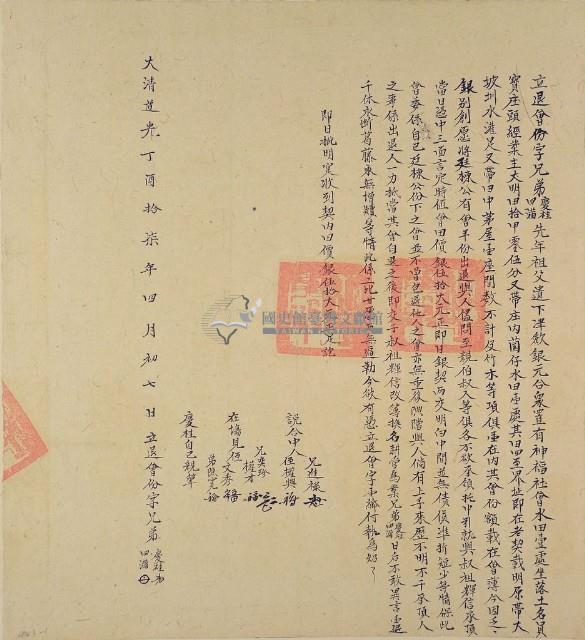 立退會份字兄弟慶桂四滿先年祖父遺下津歛銀元合衆置有神福社會水田壹處坐落土名員
寶庄頭經業主大明田拾甲零伍分又帶庄內菌仔水田壹處其田四至界址即在老契載明原帶大
坡圳水灌足又帶田中茅屋壹座間數不計及竹木等項俱壹在內其會份額載在會簿今因乏
銀別創愿將廷棟公有會半份出退與人儘問至親伯叔人等俱各不欲承領托中引就與叔祖輝信承頂
當日憑中三面言定時值會田價銀伍拾大元正即日銀契兩交明白中間並無債貨準折短少等情保此
會委係自己廷棟公份下之會並不曾包退他人之會亦無重復典掛與人倘有上手來歷不明不干承頂人
之事係出退人一力抵當其會自退之後即交于叔祖輝信改簿換名耕管為業兄弟慶桂四滿日后不敢異言壹退
千休永斷葛藤永無增贖等情此係二比甘愿無逼勒今欲有憑立退會字壹紙付執為炤
即日批明實收到契內田價銀伍拾大元正足訖
說合中人兄進祿
侄權興
兄英珍
權本
在塲見侄文秀
弟
慶桂自己親筆
大清道光丁酉拾柒年四月初七日立退會份字兄弟慶桂四滿
國史館臺灣文獻館
TAIWAN HISTORICA